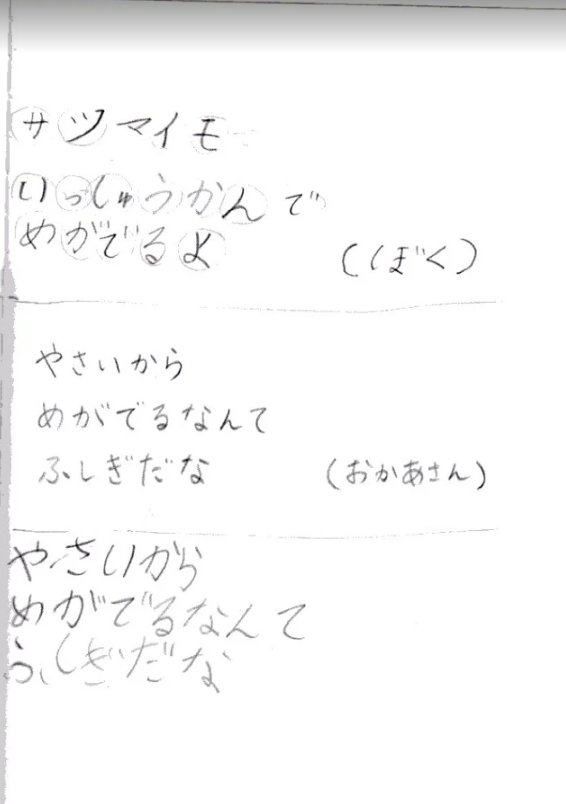 サツマイモ
いっしゅうかんで
めがでるよ
(ぼく)
やさいから
めがでるなんて
ふしぎだな
(おかあさん)
やさいから
めがでるなんて
ふしぎだな